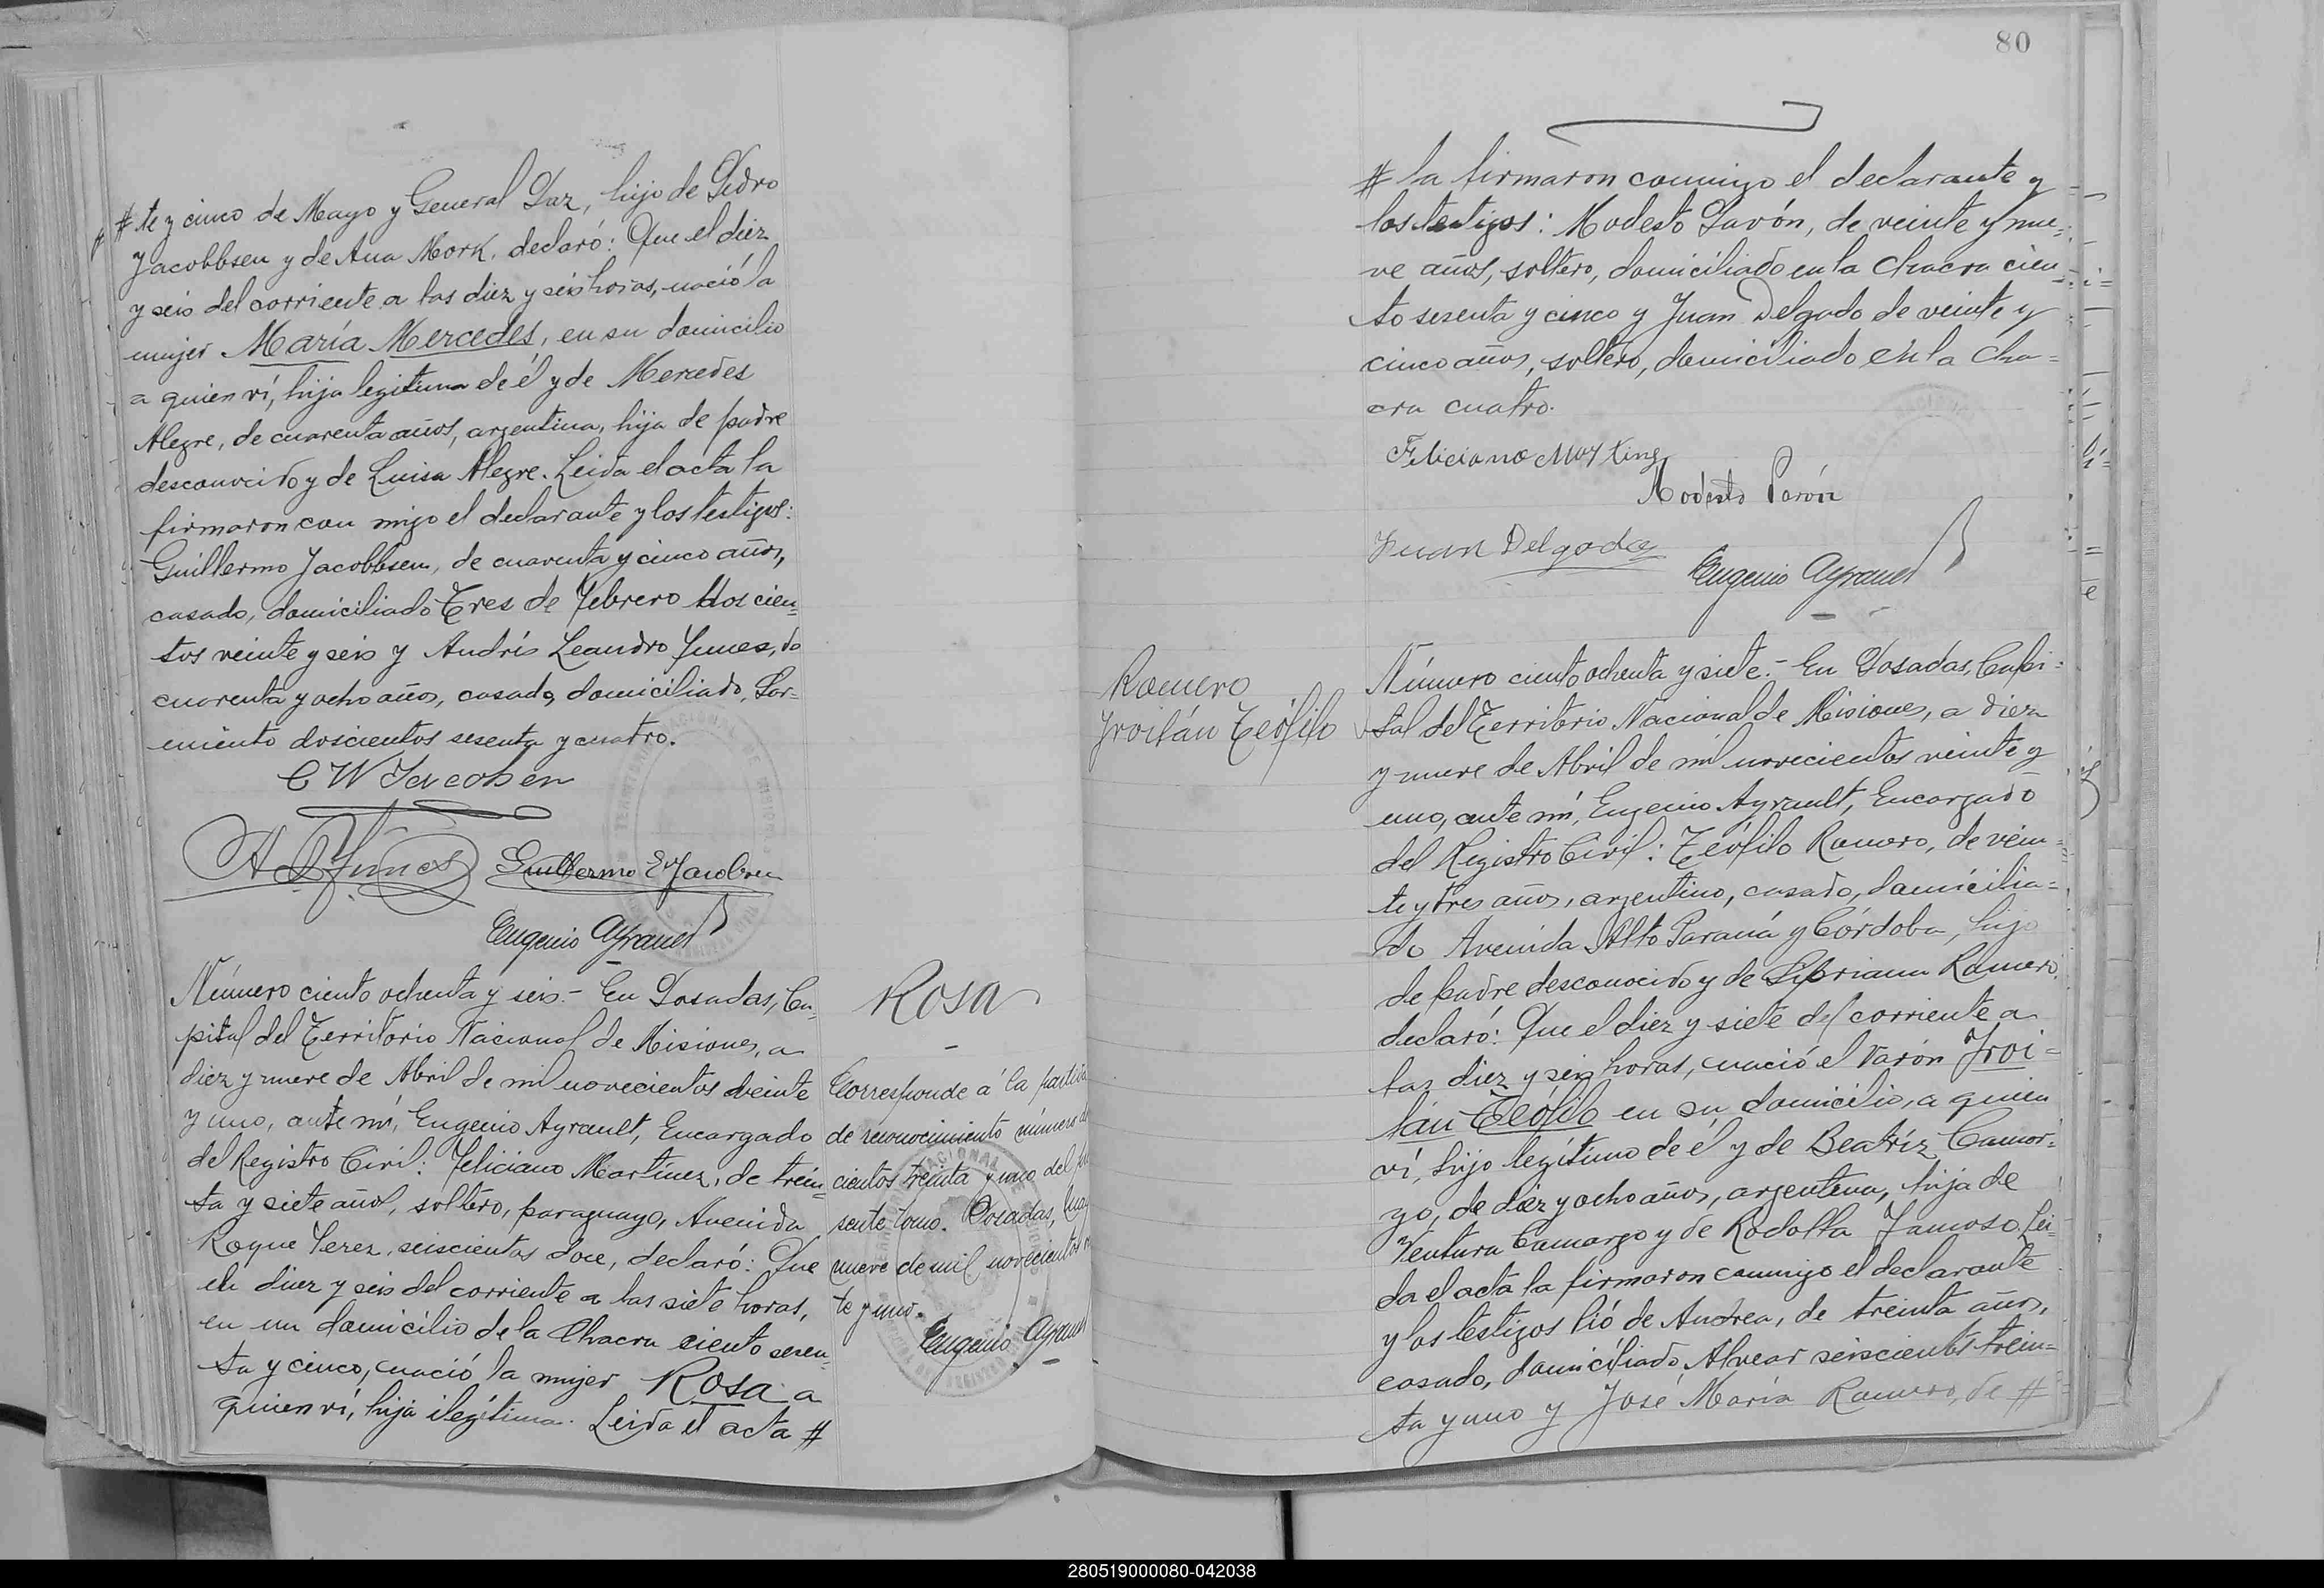 # te y cinco de Mayo y General Paz, hijo de Pedro
Jacobbsen y de Ana Mork, declaró: Que el diez
y seis del corriente a las diez y seis horas, nació la
mujer María Mercedes, en su domicilio
a quien ví, hija legitima de él y de Mercedes
Alegre, de cuarenta años, argentina, hija de padre
desconocido y de Luisa Alegre. Leida el acta la
firmaron con migo el declarante y los testigos:
Guillermo Jacobbsen, de cuarenta y cinco años,
casado, domiciliado Tres de Febrero doscien=
tos veinte y seis y Andrés Leandro Yunes, de
cuarenta y ocho años, casado, domiciliado, Sar-
miento doscientos sesenta y cuatro.
C W Jacobsen
A L Yunes Guillermo E Jacobsen
Eugenio Ayrault
Número ciento ochenta y seis.- En Posadas, Ca-
pital del Territorio Nacional de Misiones, a
diez y nueve de Abril de mil novecientos veinte
y uno, ante mí, Eugenio Ayrault, Encargado
del Registro Civil: Feliciano Martínez, de trein=
ta y siete años, soltero, paraguayo, Avenida
Roque Perez, seiscientos doce, declaró: Que
el diez y seis del corriente a las siete horas,
en un domicilio de la Chacra ciento sesen=
ta y cinco, nació la mujer Rosa a
quien ví, hija ilegítima. Leida el acta #
Rosa
Corresponde á la partida
de reconocimiento número
cientos treinta y uno del
sente tomo. Posadas,
nueve de mil novecientos
te y uno.
Eugenio Ayrault
80
# la firmaron conmigo el declarante y
los testigos: Modesto Pavón, de veinte y nue=
ve años, soltero, domiciliado en la Chacra cien=
to sesenta y cinco y Juan Delgado de veinte y
cinco años, soltero, domiciliado en la Cha=
cra cuatro.
Feliciano
Modesto Pavón
Juan Delgado
Eugenio Ayrault
Romero
Froilán Teófilo
Número ciento ochenta y siete.- En Posadas, Capi=
tal del Territorio Nacional de Misiones, a diez
y nueve de Abril de mil novecientos veinte y
uno, ante mí, Eugenio Ayrault, Encargado
del Registro Civil: Teófilo Romero, de vein=
te y tres años, argentino, casado, domicilia=
do Avenida Alto Paraná y Córdoba, hijo
de padre desconocido y de Sipriana Romero,
declaró: Que el diez y siete del corriente a
las diez y seis horas, nació el varón Froi=
lán Teófilo en su domicilio, a quien
ví, hijo legítimo de él y de Beatríz Camar=
go, de diez y ocho años, argentina, hija de
Ventura Camargo y de Rodolfa Famoso. Lei=
da el acta la firmaron conmigo el declarante
y los testigos Pió de Andrea, de treinta años,
casado, domiciliado, Alvear seiscientos trein=
ta y uno y José María Romero, de #
280519000080-042038